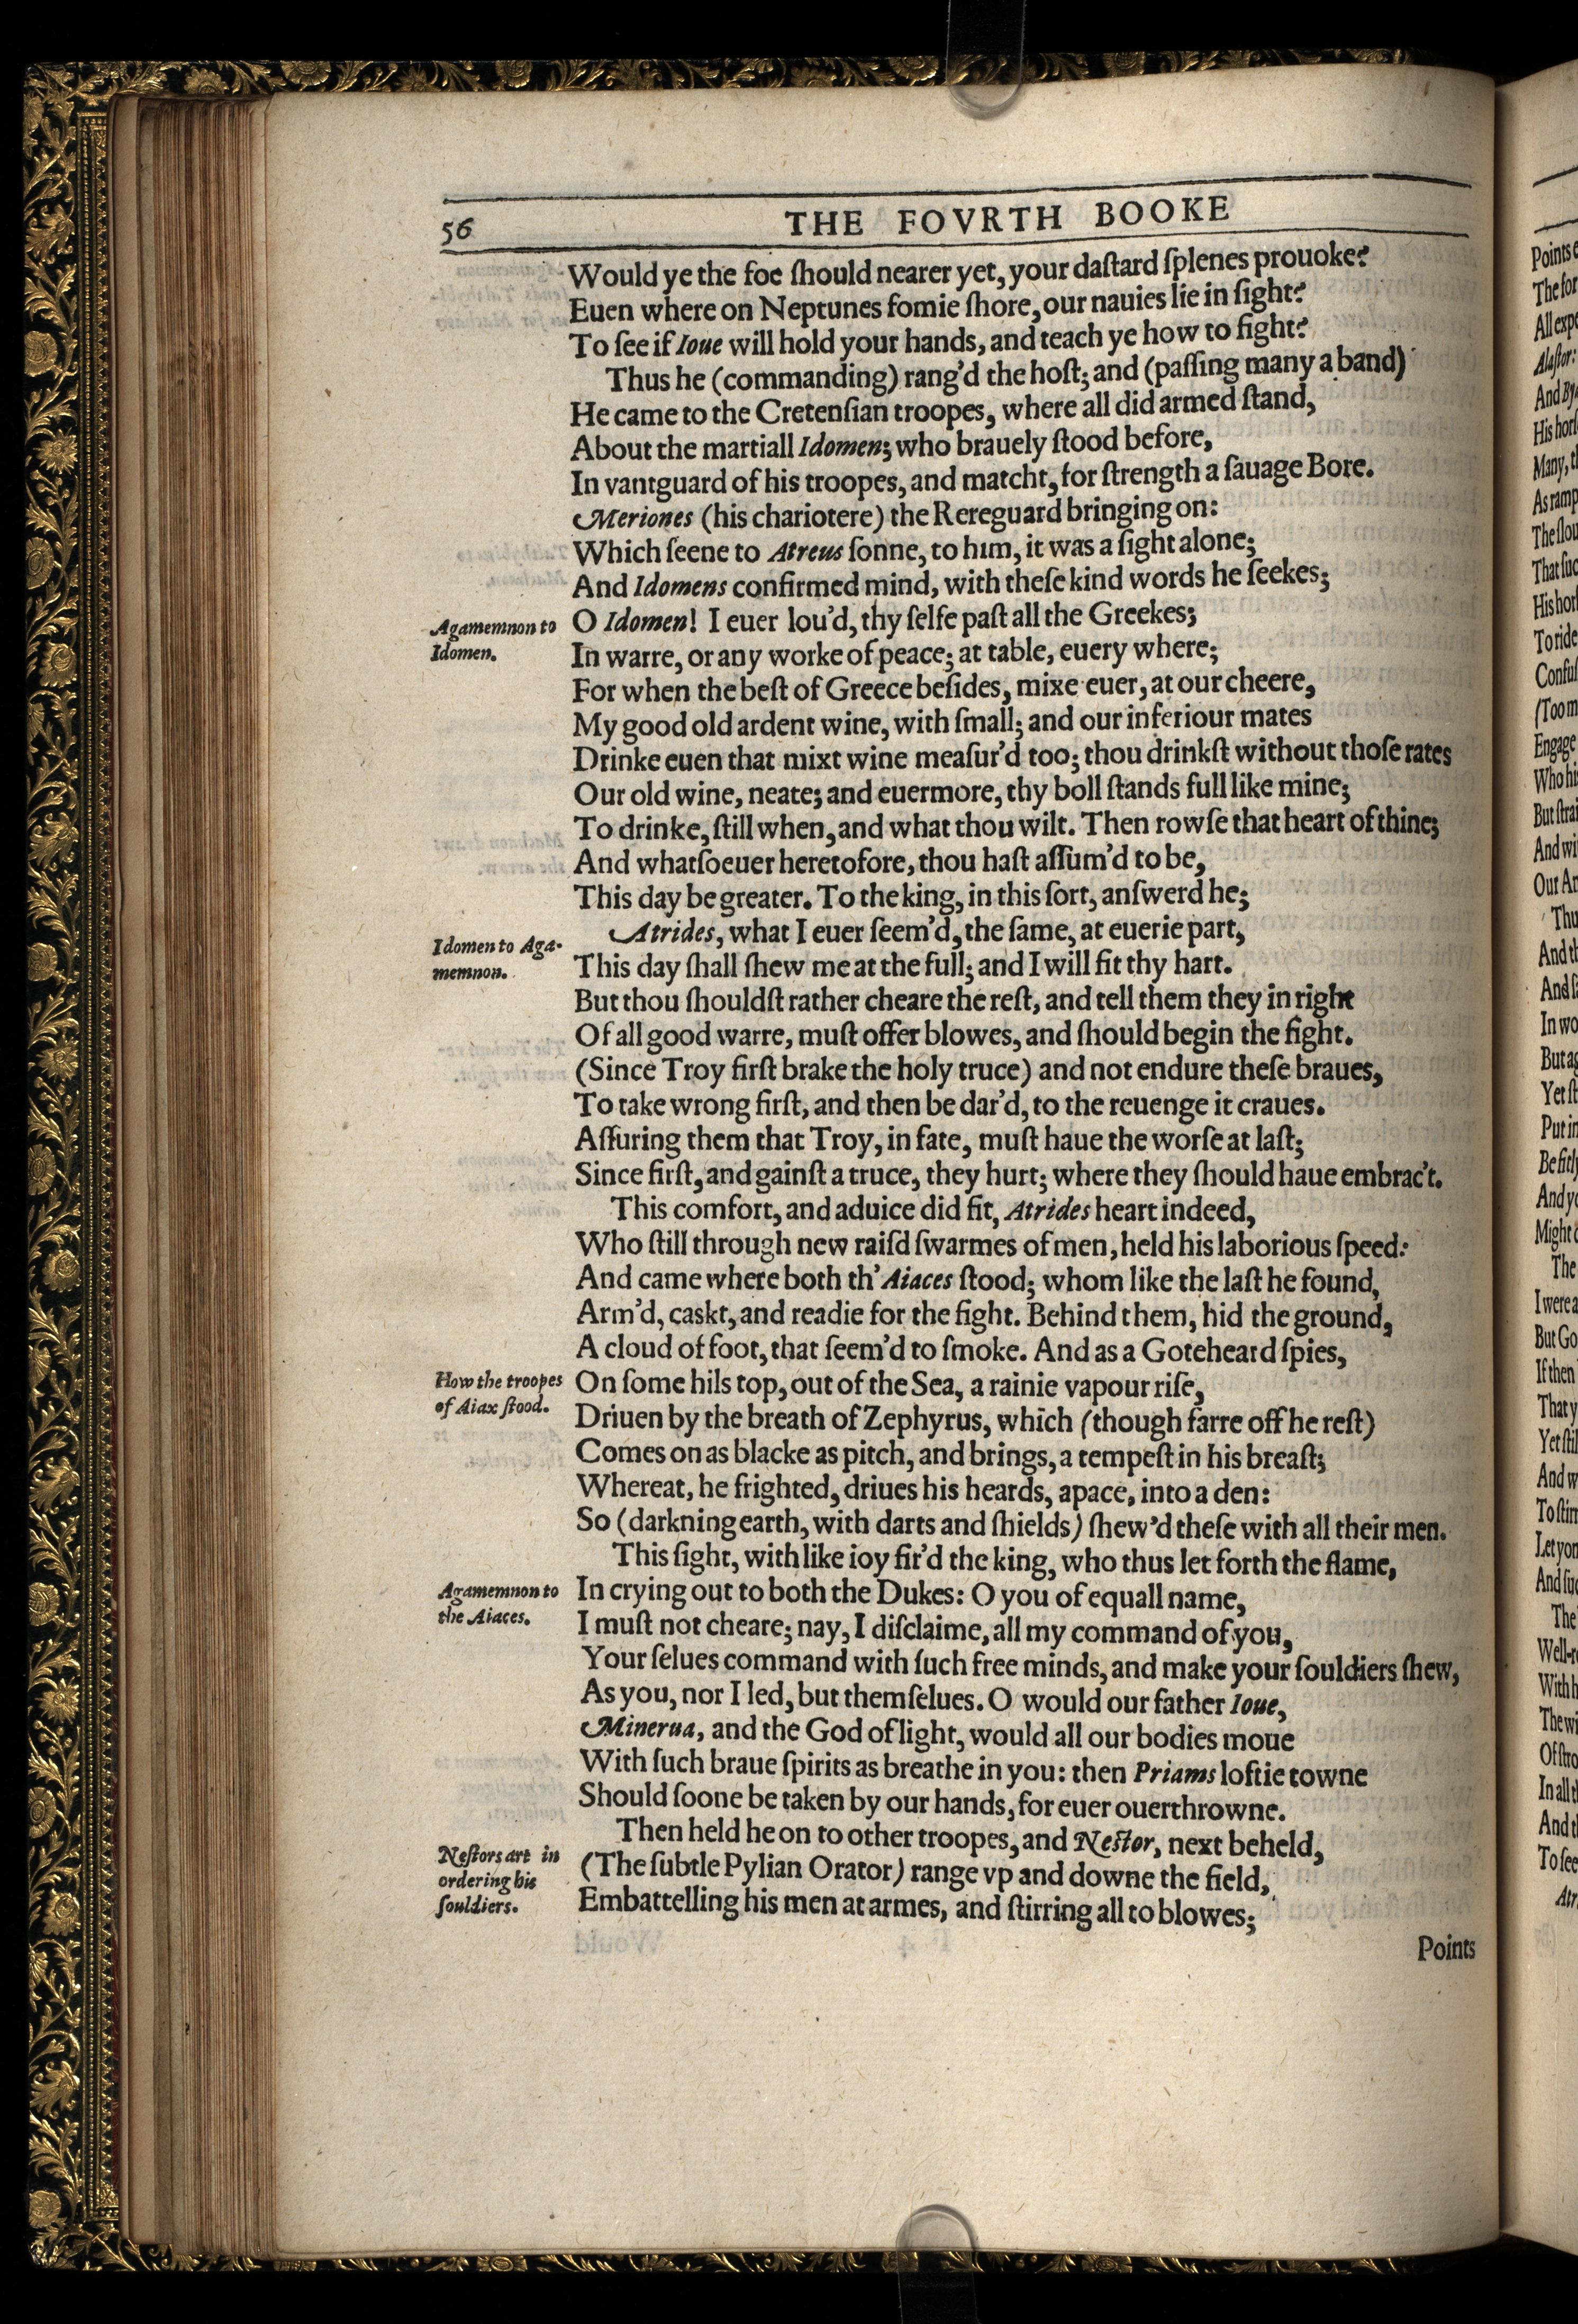 56
THE FOVRTH BOOKE
Would ye the foe ſhould nearer yet, your daſtard ſplenes prouoke?
Euen where on Neptunes fomie ſhore, our nauies lie in ſight?
To ſee if Ioue will hold your hands, and teach ye how to fight?
Thus he (commanding) rang'd the hoſt; and (paſſing many a band)
He came to the Cretenſian troopes, where all did armed ſtand,
About the martiall Idomen; who brauely ſtood before,
In vantguard of his troopes, and matcht, for ſtrength a ſauage Bore.
Meriones (his chariotere) the Rereguard bringing on:
Which ſeene to Atreus ſonne, to him, it was a ſight alone;
And Idomens confirmed mind, with theſe kind words he ſeekes;
Agamemnon to
Idomen.
O Idomen! I euer lou'd, thy ſelfe paſt all the Greekes;
In warre, or any worke of peace; at table, euery where;
For when the beſt of Greece beſides, mixe euer, at our cheere,
My good old ardent wine, with ſmall; and our inferiour mates
Drinke euen that mixt wine meaſur'd too; thou drinkſt without thoſe rates
Our old wine, neate; and euermore, thy boll ſtands full like mine;
To drinke, ſtill when, and what thou wilt. Then rowſe that heart of thine;
And whatſoeuer heretofore, thou haſt aſſum'd to be,
This day be greater. To the king, in this ſort, anſwerd he;
Idomen to Aga-
memnon.
Atrides, what I euer ſeem'd, the ſame, at euerie part,
This day ſhall ſhew me at the full; and I will fit thy hart.
But thou ſhouldſt rather cheare the reſt, and tell them they in right
Of all good warre, muſt offer blowes, and ſhould begin the fight.
(Since Troy firſt brake the holy truce) and not endure theſe braues,
To take wrong firſt, and then be dar'd, to the reuenge it craues.
Aſſuring them that Troy, in fate, muſt haue the worſe at laſt;
Since firſt, and gainſt a truce, they hurt; where they ſhould haue embrac't.
This comfort, and aduice did fit, Atrides heart indeed,
Who ſtill through new raiſd ſwarmes of men, held his laborious ſpeed:
And came where both th' Aiaces ſtood; whom like the laſt he found,
Arm'd, caskt, and readie for the fight. Behind them, hid the ground,
A cloud of foot, that ſeem'd to ſmoke. And as a Goteheard ſpies,
How the troopes
of Aiax ſtood.
On ſome hils top, out of the Sea, a rainie vapour riſe,
Driuen by the breath of Zephyrus, which (though farre off he reſt)
Comes on as blacke as pitch, and brings, a tempeſt in his breaſt;
Whereat, he frighted, driues his heards, apace, into a den:
So (darkning earth, with darts and ſhields) ſhew'd theſe with all their men.
This ſight, with like ioy fir'd the king, who thus let forth the flame,
Agamemnon to
the Aiaces.
In crying out to both the Dukes: O you of equall name,
I muſt not cheare; nay, I diſclaime, all my command of you,
Your ſelues command with ſuch free minds, and make your ſouldiers ſhew,
As you, nor I led, but themſelues. O would our father Ioue,
Minerua, and the God of light, would all our bodies moue
With ſuch braue ſpirits as breathe in you: then Priams loftie towne
Should ſoone be taken by our hands, for euer ouerthrowne.
Then held he on to other troopes, and Neſtor, next beheld,
Neſtors art in
ordering his
ſouldiers.
(The ſubtle Pylian Orator) range vp and downe the field,
Embattelling his men at armes, and ſtirring all to blowes;
Points